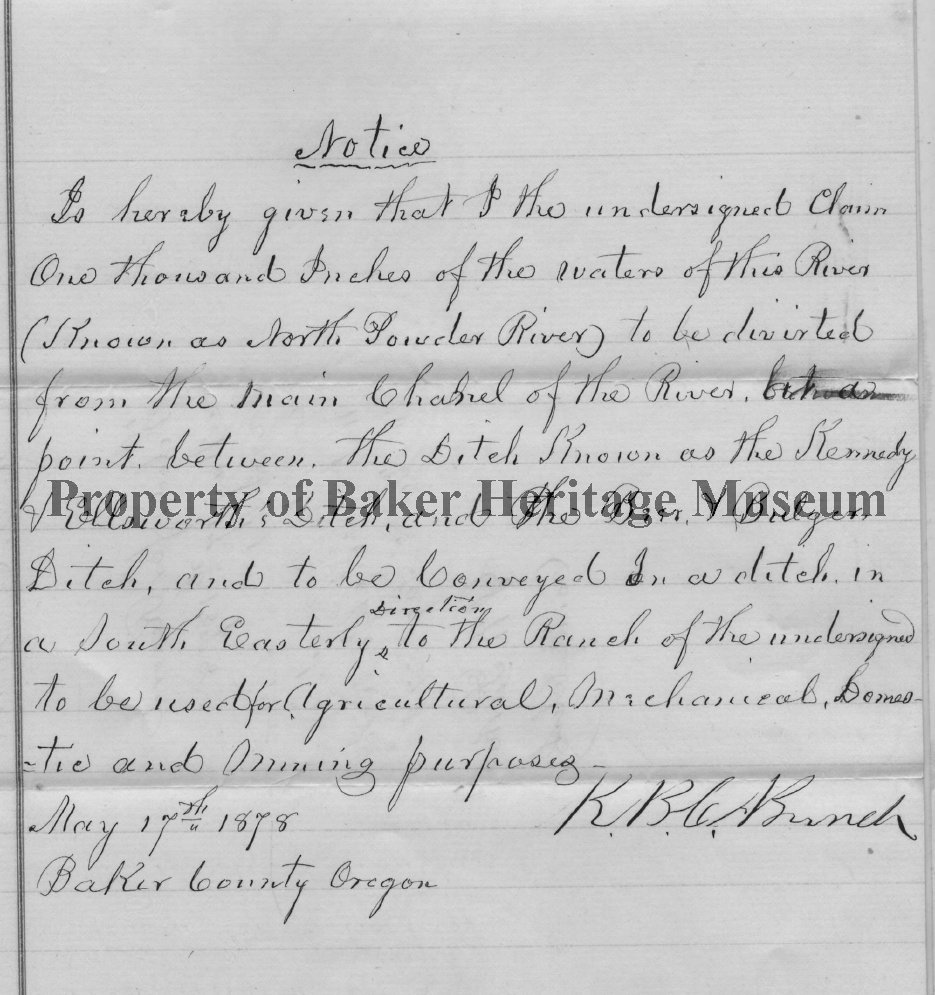 Notice
Is hereby given that I the undersigned Claim
One thousand Inches of the waters of this River
(Known as North Powder River) to be divirted
from the main Chanel of the River.
point. between. the Ditch Known as the Kennedy
Property of Baker Heritage Museum
& Ellsworth's Ditch, and the & Bulger
Ditch, and to be Conveyed In a ditch. in
Direction
a South Easterly to the Ranch of the undersigned
to be used for Agricultural, Mechanical, Domes-
-tic and Mining purposes-
May 17th 1878
K. B. C. Bunch
Baker County Oregon